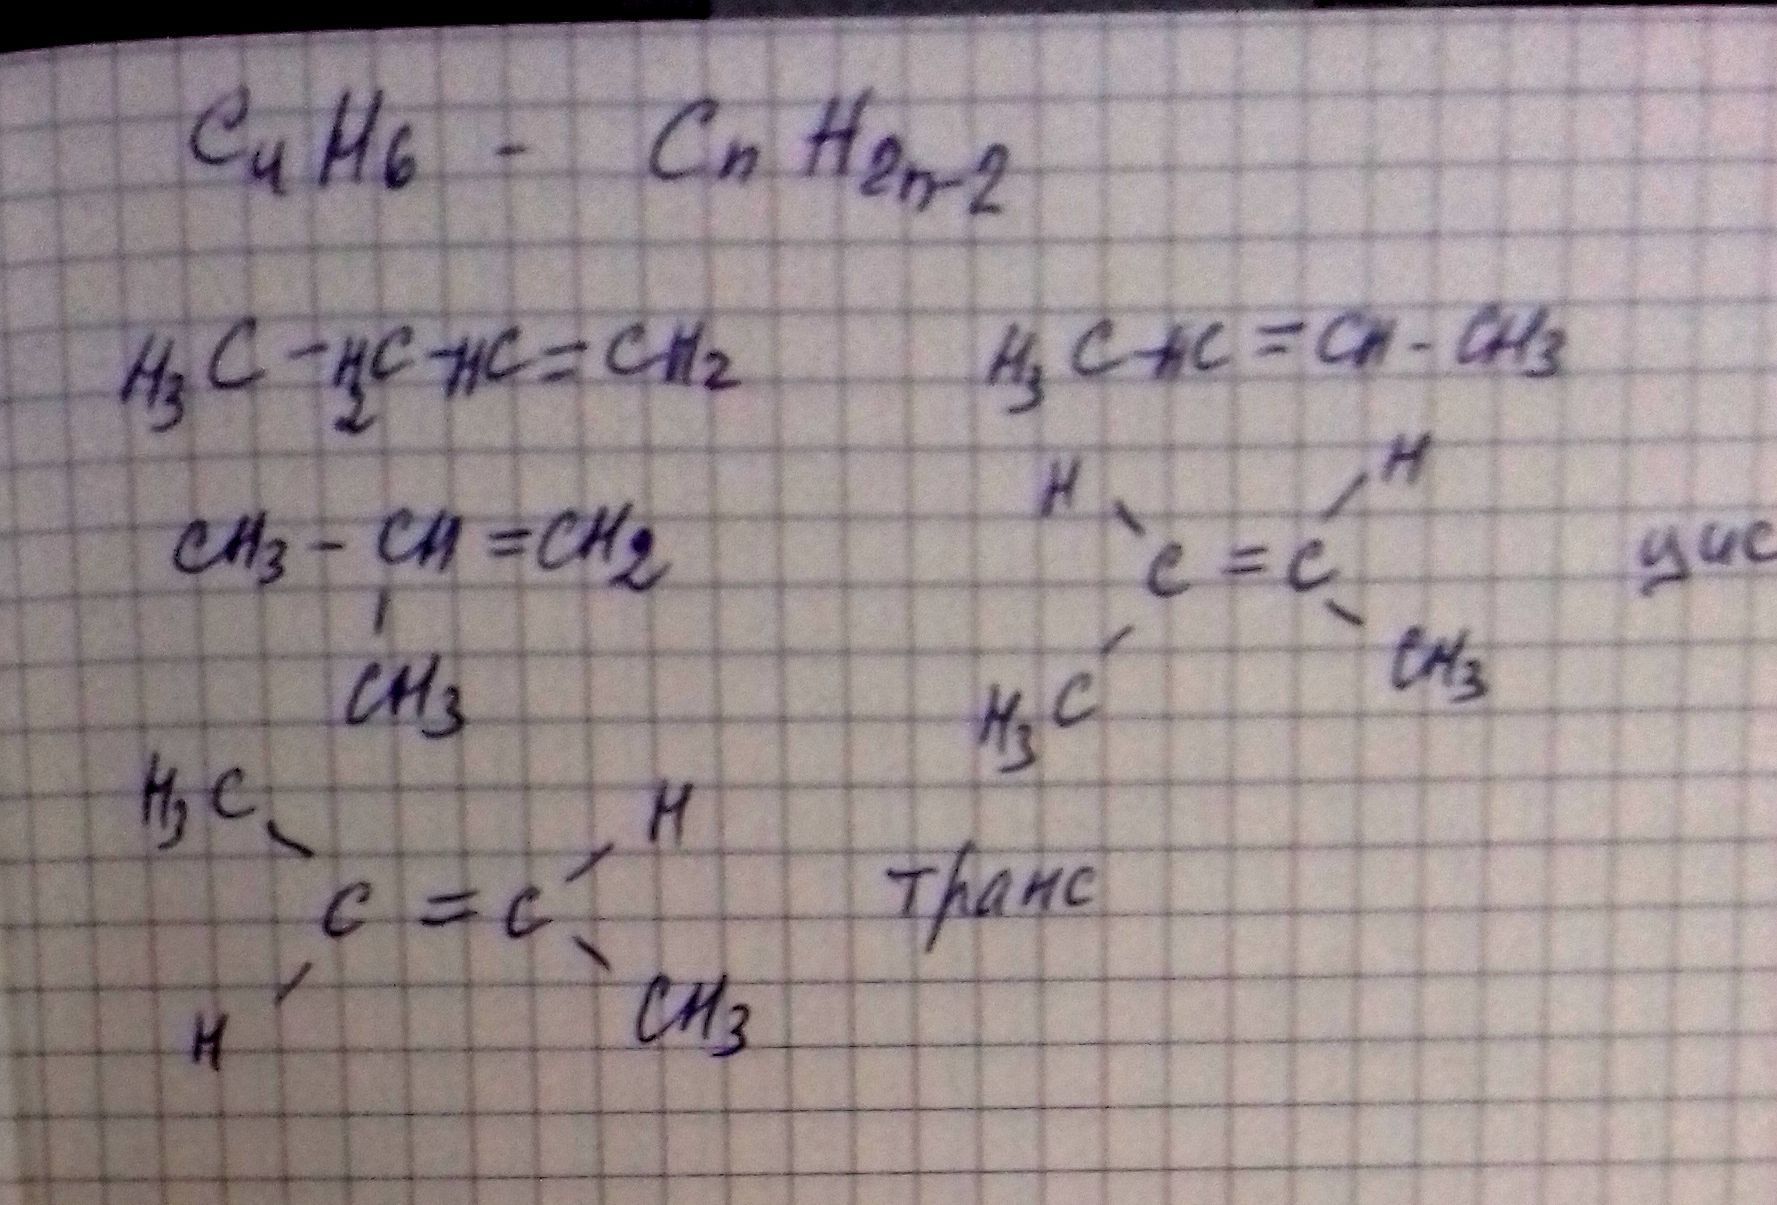 C₄H₆ - CₙH₂ₙ₋₂
H₃C-H₂C-HC=CH₂ H₃C-HC=CH-CH₃
H H
CH₃-CH=CH₂ C=C цис
CH₃ H₃C CH₃
H₃C H
C=C транс
H CH₃